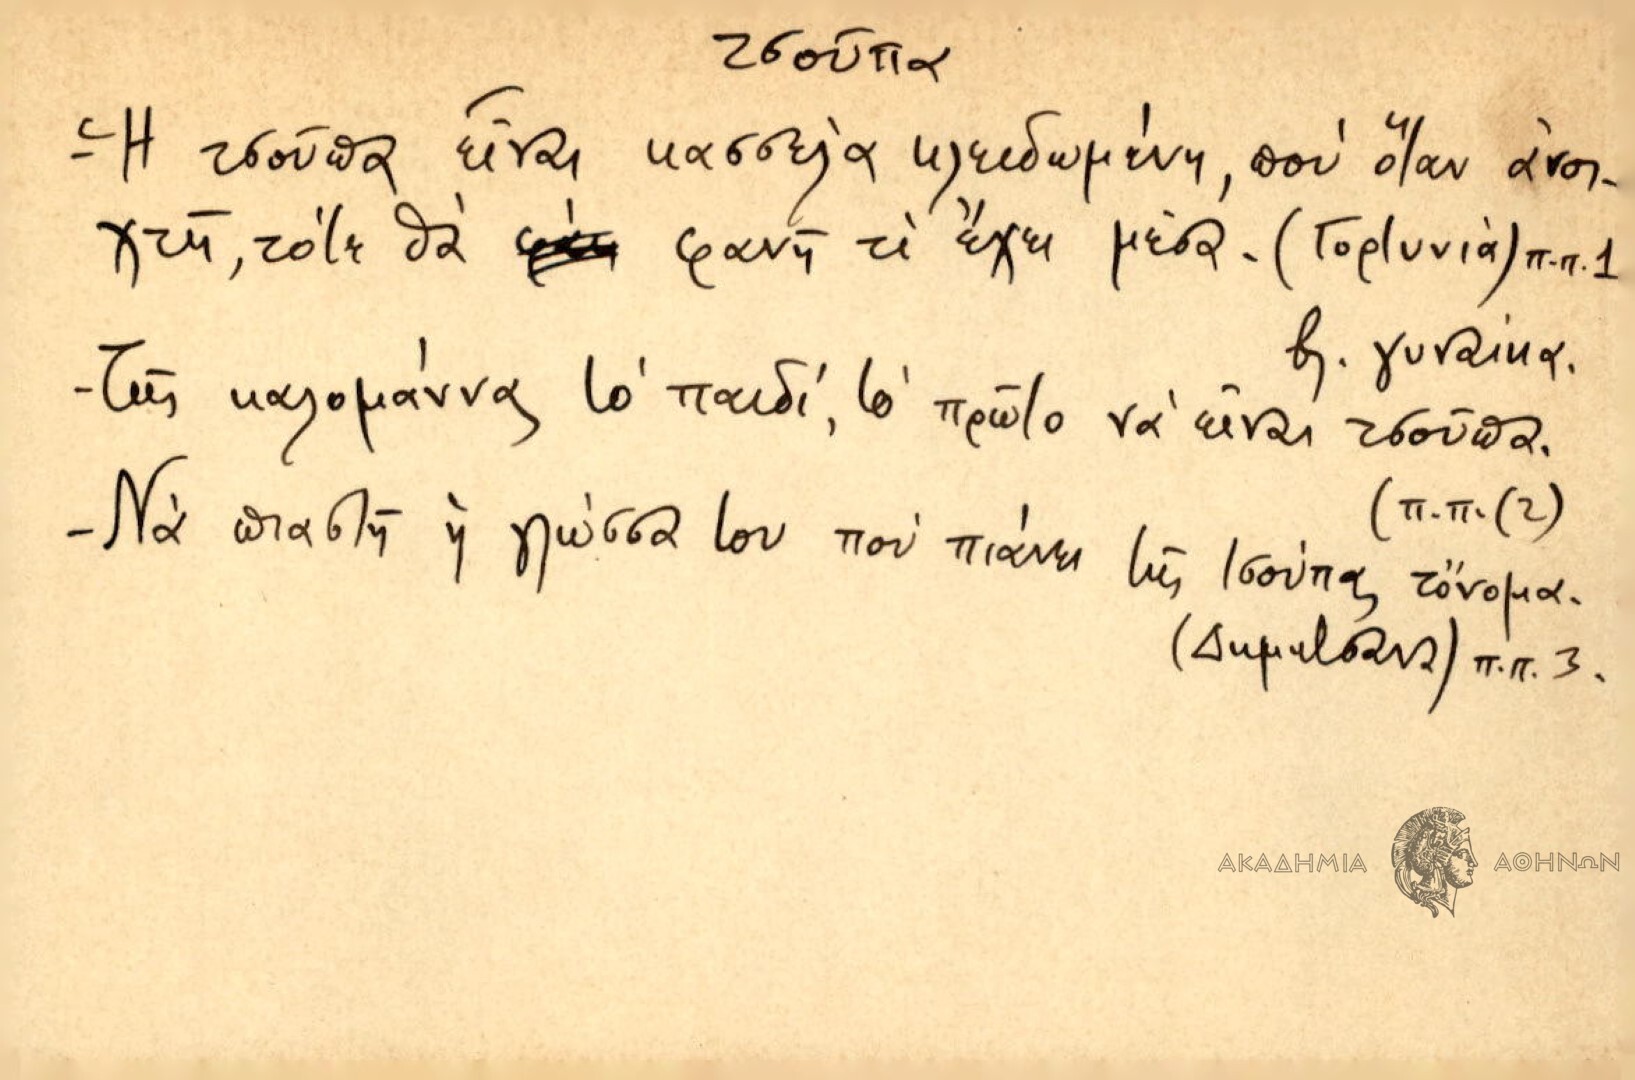 τσοῦπα
- Ἡ τσοῦπα εἶναι κασσέλα κλειδωμένη, ποὺ ὅταν ἀνοι-
χτῆ, τότε θὰ φανῆ τί ἔχει μέσα. (Γορτυνία) π.π. 1
βλ. γυναίκα.
- Τῆς καλομάννας τὸ παιδί, τὸ πρῶτο νὰ εἶναι τσοῦπα.
(π.π. (2)
- Νὰ πιαστῆ ἡ γλώσσα του ποὺ πιάνει τῆς τσούπας τὄνομα.
(Δημητσάνα) π.π. 3.
ΑΚΑΔΗΜΙΑ ΑΘΗΝΩΝ